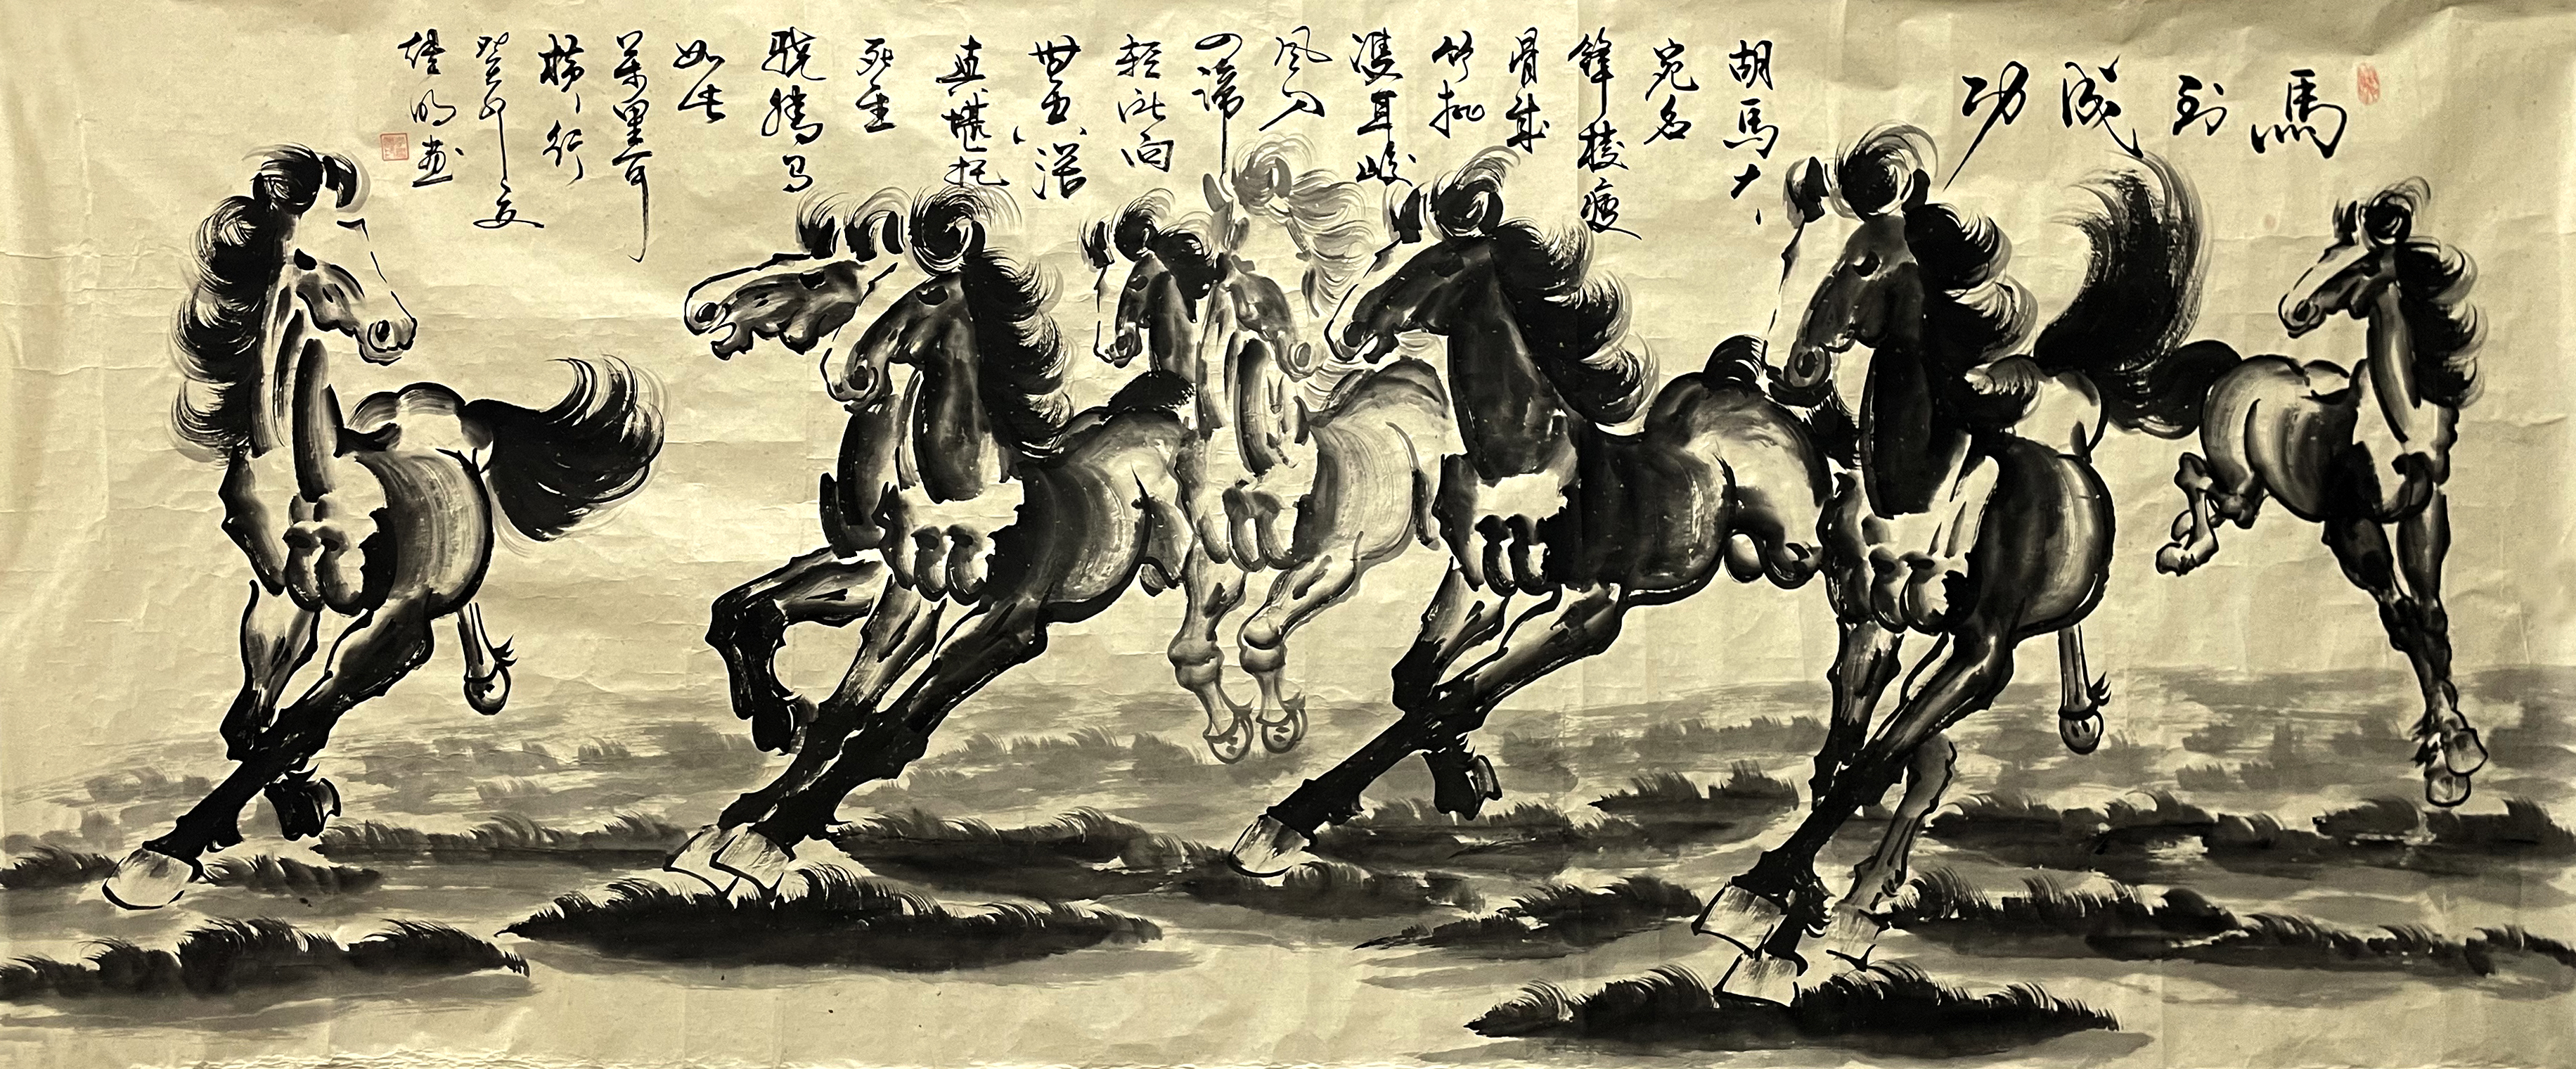 馬到成功
胡馬大
宛名
鋒棱瘦
骨成
竹批
雙耳峻
風入
四蹄
輕所向
無空闊
真堪托
死生
驍騰有
如此
萬里可
橫行
癸卯夏
明画